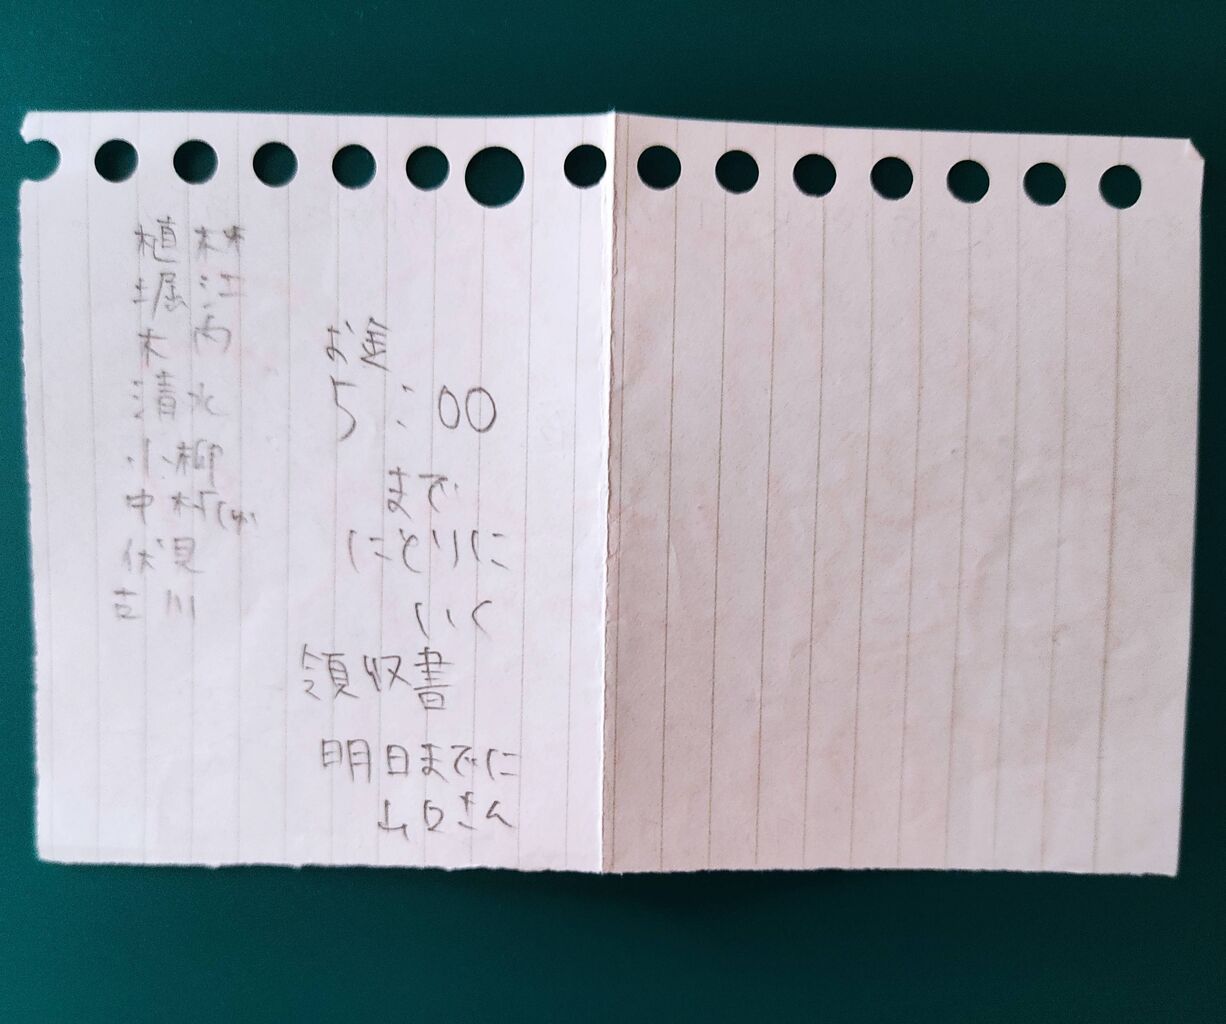 植林
堀江
清水
小柳
中村じゅ
伏見
古川
お金
5:00
まで
にとりに
いく
領収書
明日までに
山口さん